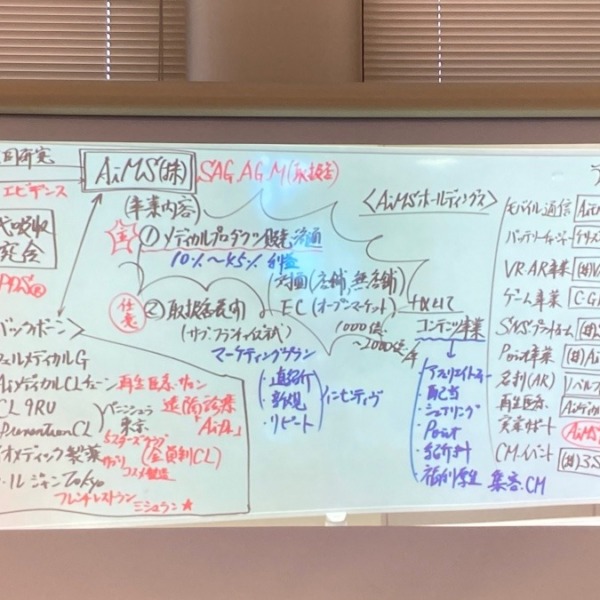 同研究
エビデンス
AiMS(株)
SAG.AGM(取扱店)
吸収
PDS®
バックボーン>
メディカルG
AiメディカルCLチェーン
再生医療・サロン
CL 9RU
PreventionCL
ペニンシュラ
東京
遠隔診療
5スターズラボ
(会員制CL)
オメディック製薬
コスメ製造
ル・ルジャンTokyo
フレンチレストラン
ミシュラン★
(事業内容)
① メディカルプロダクツ販売、流通
10%~45% 利益
(店舗、無店舗)
任意
② 取扱店展開
(サブ・フランチャイズ式)
EC(オープンマーケット)
1000億
~2000億/年
マーケティングプラン
・直紹介
・新規
・リピート
インセンティヴ
<AiMSホールディングス>
コンテンツ事業
・アフィリエイト
・配当
・シェアリング
・Point
・紹介料
・福利厚生
集客・CM
モバイル通信
バッテリーチャージャー
VR・AR事業
ゲーム事業
SNSプラットホーム
Point事業
名刺(AR)
再生医療
実業サポート
AiMS
CMイベント